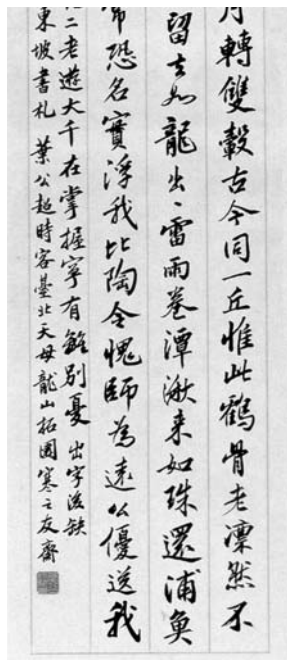 月轉雙轂古今同一丘惟此鶴骨老凜然不
留去如龍出、雷雨卷潭湫来如珠還浦魚
常恐名實浮我比陶令愧師為遠公優送我
二老遊大千在掌握寧有離別憂 出字後缺
東坡書札 葉公超時客臺北天母龍山拓園寒之友齋